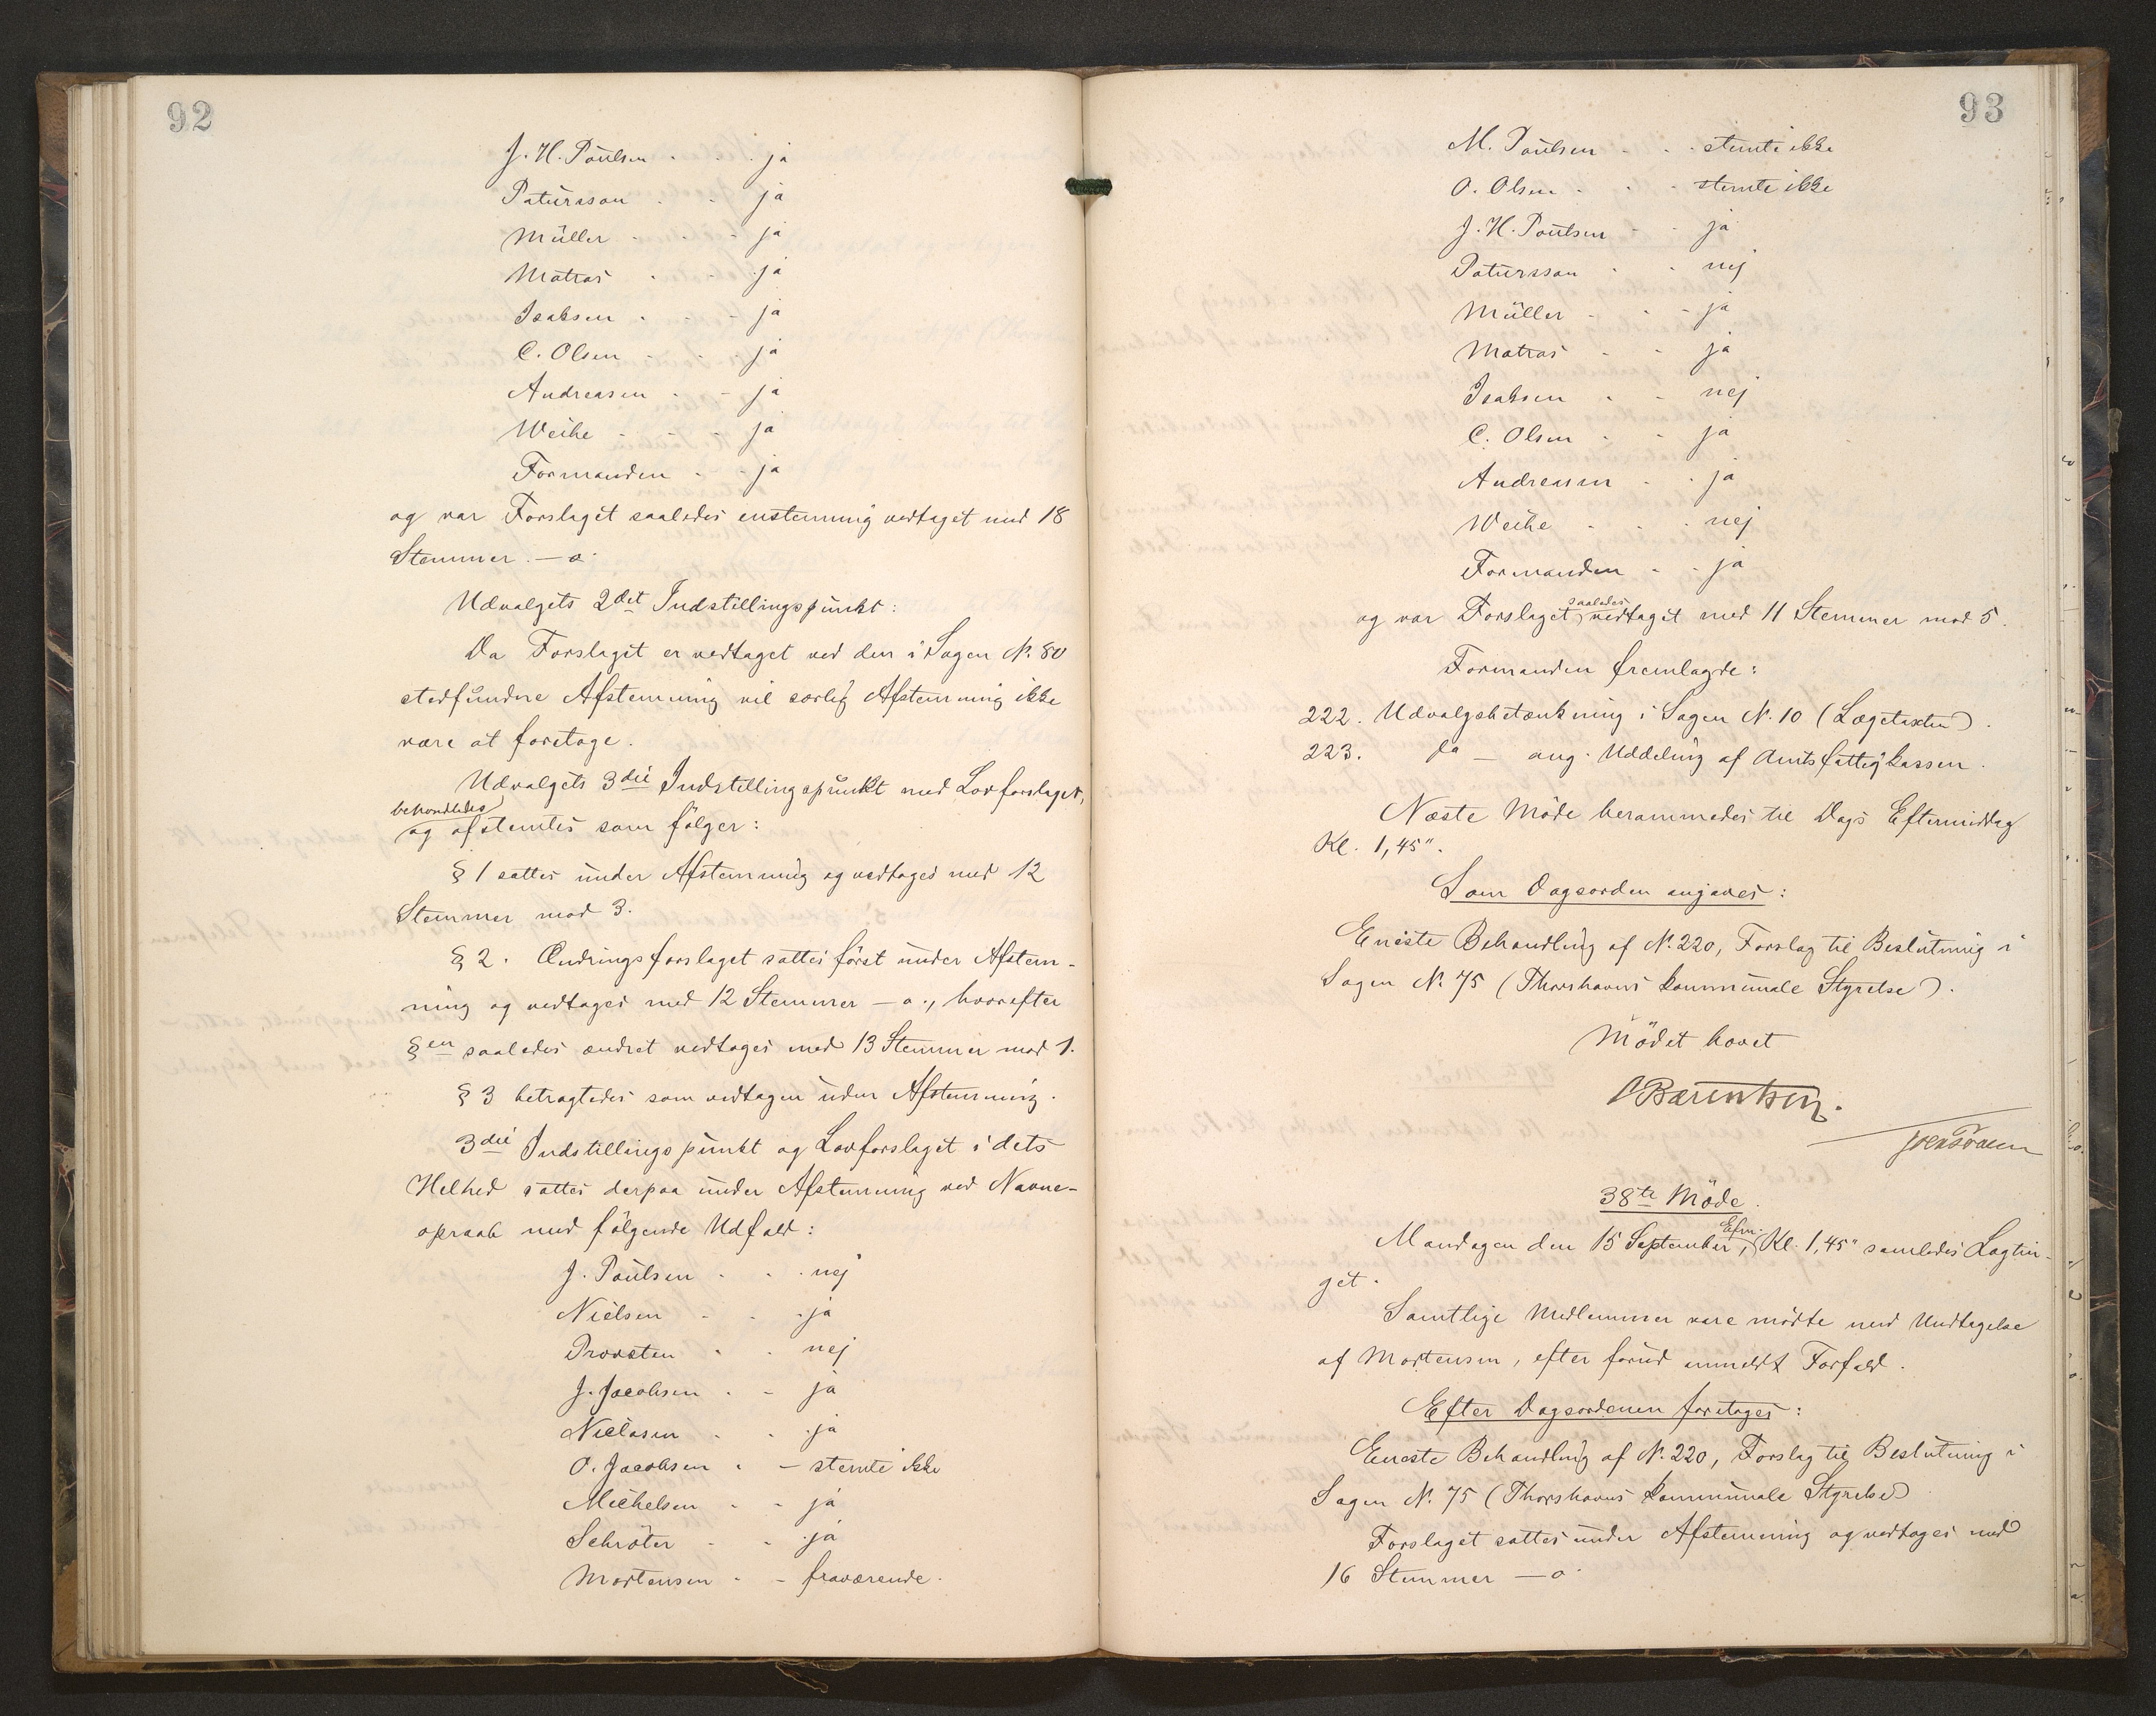 92
J. H. Poulsen - - - ja
Patursson - - ja
Müller - - - ja
Matras - - ja
Isaksen - - - ja
C. Olsen - - ja
Andreasen - - ja
Weihe - - - ja
Formanden - - ja
og var Forslaget saaledes enstemmig vedtaget med 18
Stemmer. — o.
Udvalgets 2det Indstillingspunkt:
Da Forslaget er vedtaget ved den i Sagen N. 80
stedfundne Afstemning vil særlig Afstemning ikke
være at foretage.
Udvalgets 3die Indstillingspunkt med Lovforslaget,
behandledes
og afstemtes som følger:
§ 1 sattes under Afstemning og vedtoges med 12
Stemmer mod 3.
§ 2. Ændringsforslaget sattes först under Afstem-
ning og vedtoges med 12 Stemmer — o., hvorefter
§en saaledes ændret vedtoges med 13 Stemmer mod 1.
§ 3 betragtedes som vedtagen uden Afstemning.
3die Indstillingspunkt og Lovforslaget i dets
Helhed sattes derpaa under Afstemning ved Navne-
opraab med fölgende Udfald:
J. Poulsen - - - nej
Nielsen - - - ja
Provsten - - nej
J. Jacobsen - - ja
Niclasen - - ja
O. Jacobsen - - stemte ikke
Michelsen - - ja
Schröter - - ja
Mortensen - - fraværende.
93
M. Poulsen - - - stemte ikke
O. Olsen - - - stemte ikke
J. H. Poulsen - - ja
Patursson - - nej
Müller - - - ja
Matras - - ja
Isaksen - - nej
C. Olsen - - ja
Andreasen - - ja
Weihe - - - nej
Formanden - - ja
saaledes
og var Forslaget vedtaget med 11 Stemmer mod 5.
Formanden fremlagde:
222. Udvalgsbetænkning i Sagen N. 10 (Lægetaxten).
223. do — ang. Uddeling af Amtsfattigkassen.
Næste Möde berammedes til Dags Eftermiddag
Kl. 1,45".
Som Dagsorden angaves:
Eneste Behandling af N. 220, Forslag til Beslutning i
Sagen N. 75 (Thorshavns kommunale Styrelse).
Mödet hævet
Bærentsen.
38te Möde.
Efm.
Mandagen den 15 September, Kl. 1,45" samledes Lagtin-
get.
Samtlige Medlemmer vare mödte med Undtagelse
af Mortensen, efter forud anmeldt Forfald.
Efter Dagsordenen foretoges:
Eneste Behandling af N. 220, Forslag til Beslutning i
Sagen N. 75 (Thorshavns kommunale Styrelse)
Forslaget sattes under Afstemning og vedtoges med
16 Stemmer — o.